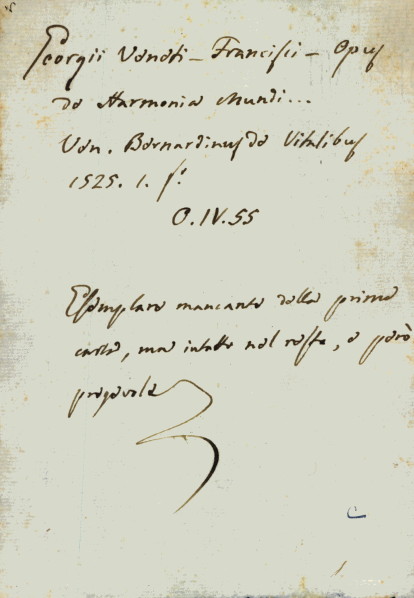 Georgii Veneti - Francisci - Opus
de Harmonia Mundi...
Ven. Bernardinus de Vitalibus
1525. 1. f.º
O. IV. 55
Esemplare mancante della prima
carta, ma intatto nel resto, e però
pregevole